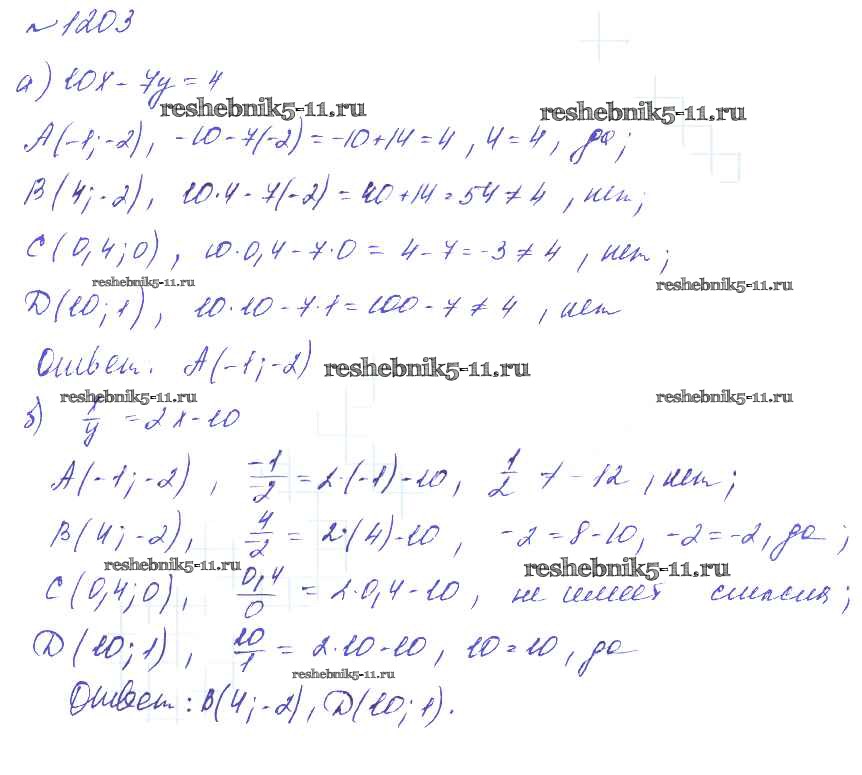 №1203
а) 10x - 7y = 4
reshebnik5-11.ru reshebnik5-11.ru
A(-1; -2), -10 - 7(-2) = -10 + 14 = 4, 4 = 4, да;
B(4; -2), 10·4 - 7(-2) = 40 + 14 = 54 ≠ 4, нет;
C(0,4; 0), 10·0,4 - 7·0 = 4 - 7 = -3 ≠ 4, нет;
reshebnik5-11.ru reshebnik5-11.ru
D(10; 1), 10·10 - 7·1 = 100 - 7 ≠ 4, нет
Ответ. A(-1; -2) reshebnik5-11.ru
reshebnik5-11.ru reshebnik5-11.ru
б) x/y = 2x - 10
A(-1; -2), -1/-2 = 2·(-1) - 10, 1/2 ≠ -12, нет;
B(4; -2), 4/2 = 2·(4) - 10, -2 = 8 - 10, -2 = -2, да;
reshebnik5-11.ru reshebnik5-11.ru
C(0,4; 0), 0,4/0 = 2·0,4 - 10, не имеет смысла;
D(10; 1), 10/1 = 2·10 - 10, 10 = 10, да
reshebnik5-11.ru
Ответ: B(4; -2), D(10; 1).